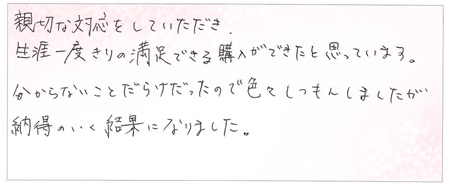 親切な対応をしていただき、
生涯一度きりの満足できる購入ができたと思っています。
分からないことだらけだったので色々しつもんしましたが
納得のいく結果になりました。